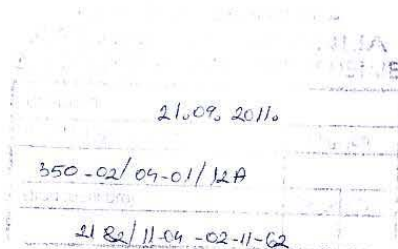 21.09. 2011.
350-02/04-01/12A
2182/11-04-02-11-62